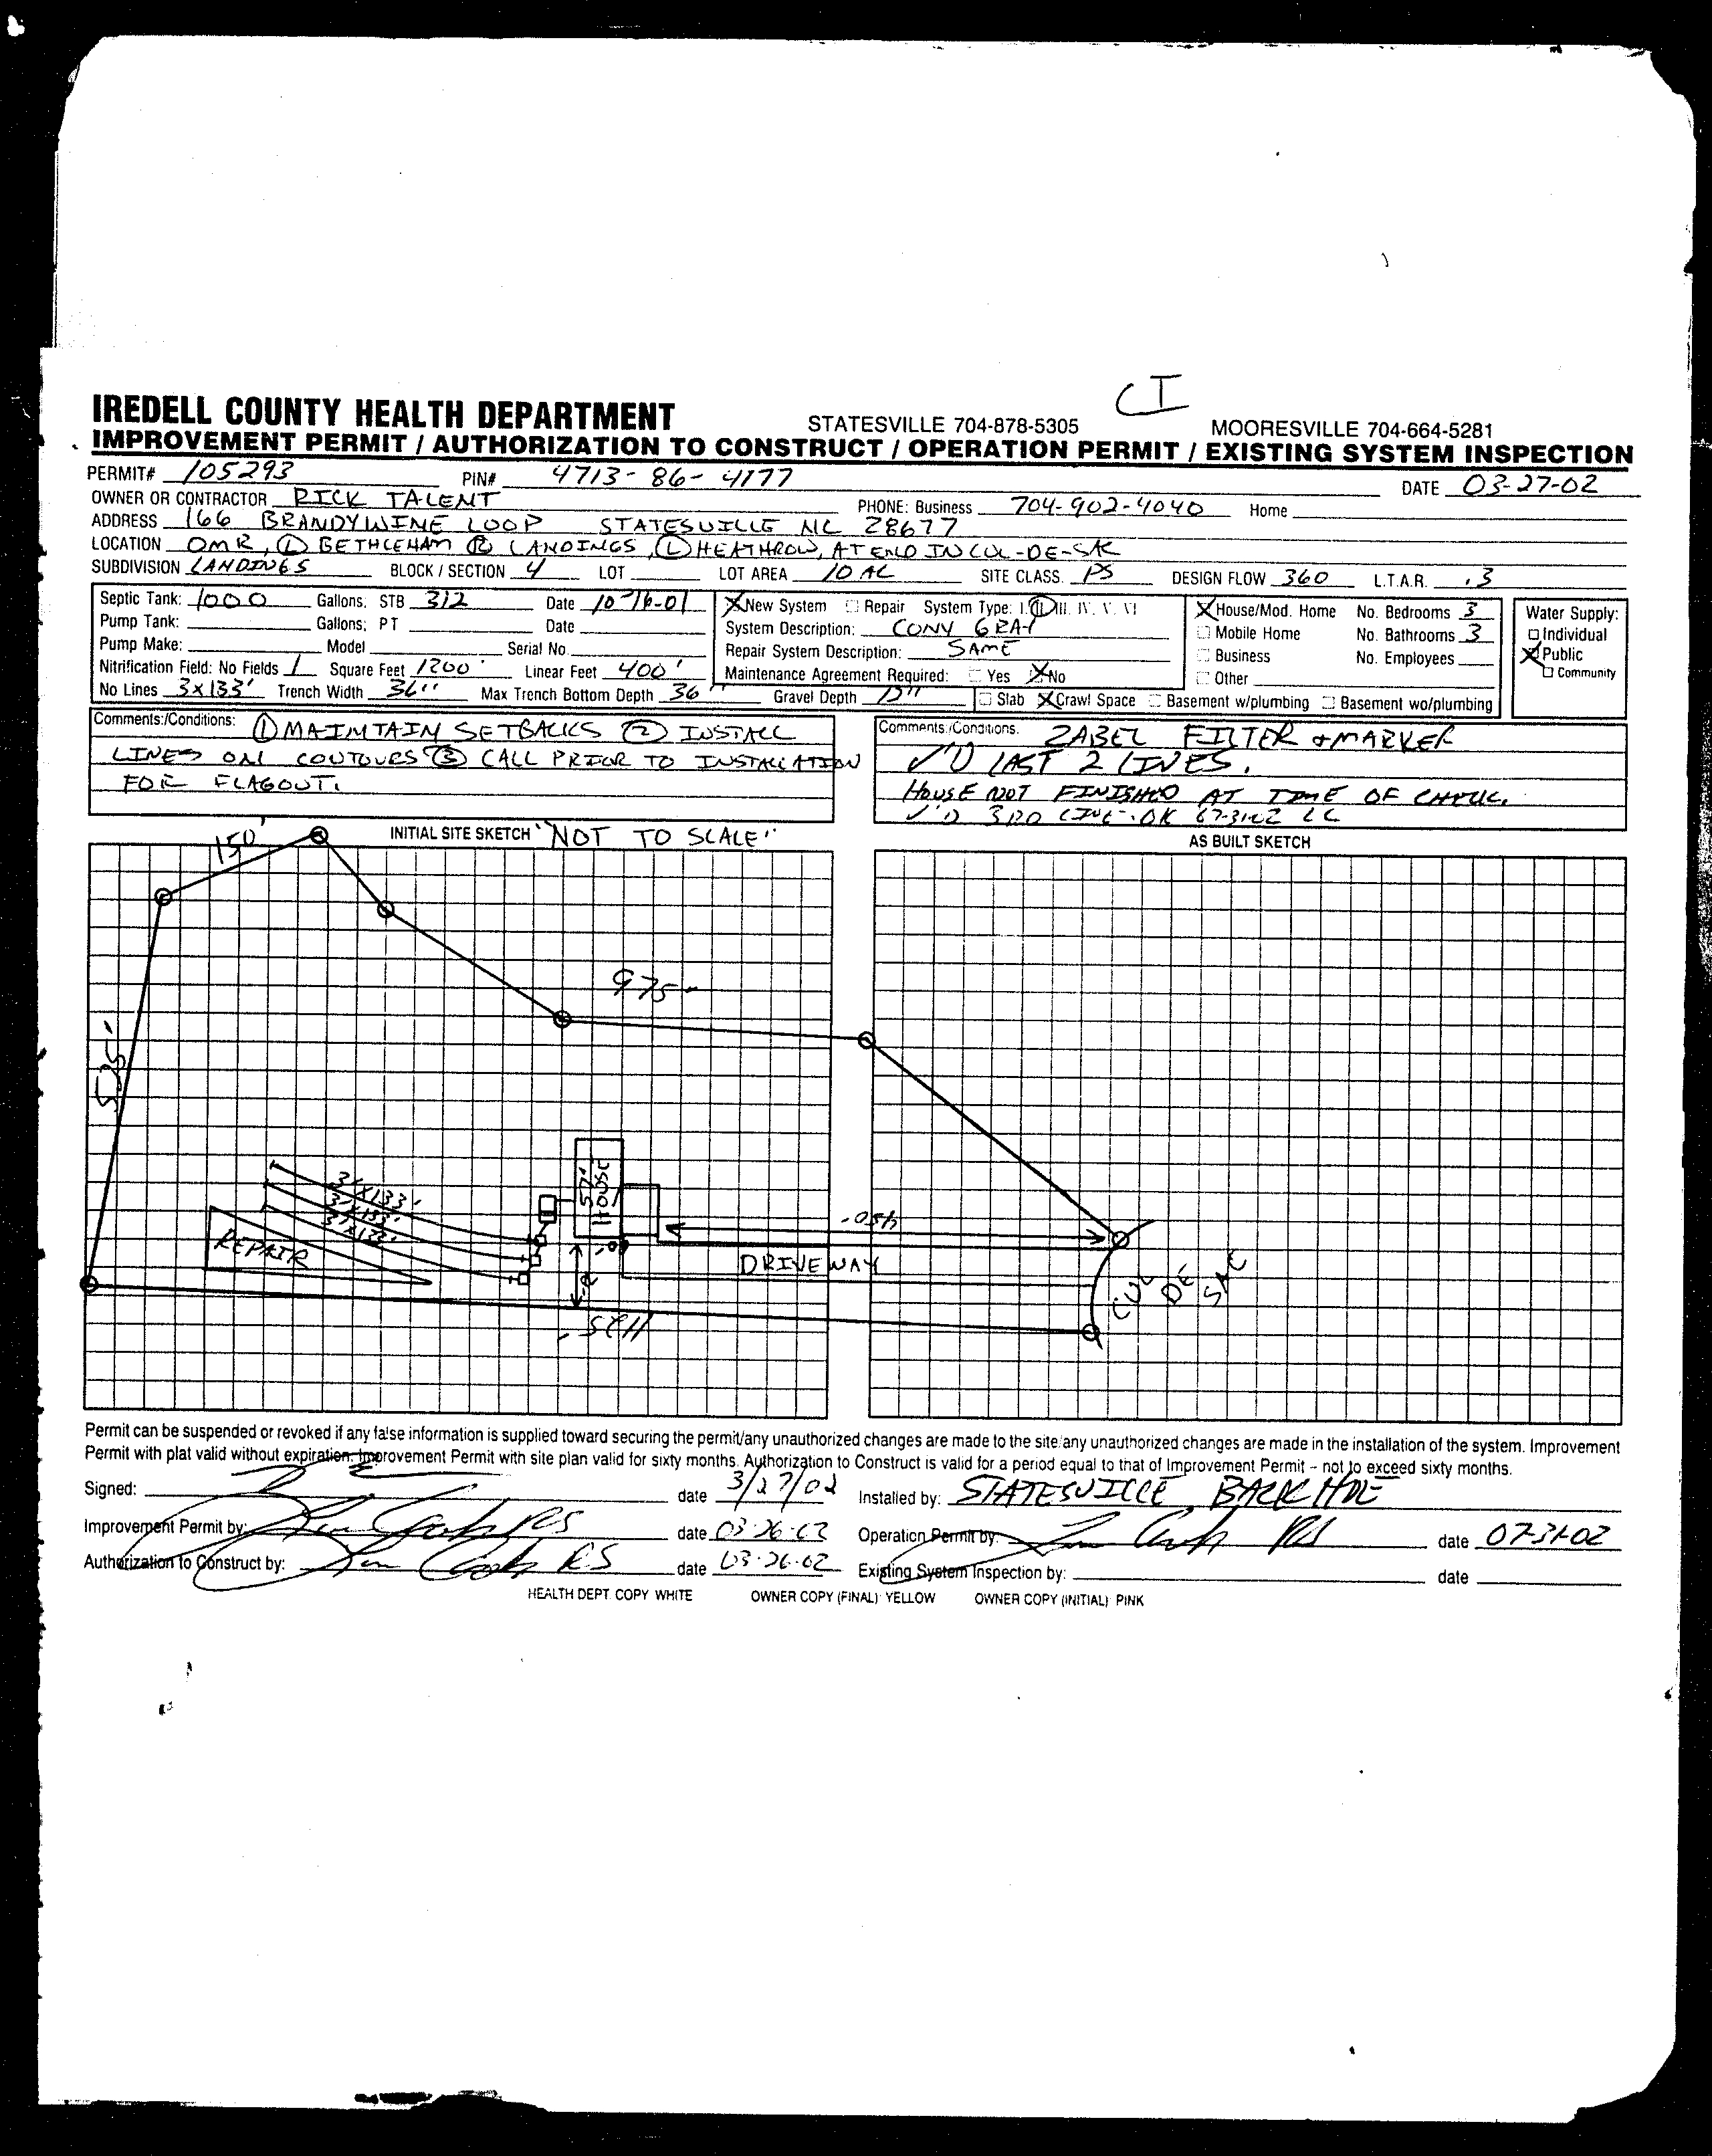 CI
IREDELL COUNTY HEALTH DEPARTMENT STATESVILLE 704-878-5305 MOORESVILLE 704-664-5281
IMPROVEMENT PERMIT / AUTHORIZATION TO CONSTRUCT / OPERATION PERMIT / EXISTING SYSTEM INSPECTION
PERMIT# 105293 PIN# 4713-86-4177 DATE 03-27-02
OWNER OR CONTRACTOR RICK TALENT PHONE: Business 704-902-4040 Home
ADDRESS 166 BRANDYWINE LOOP STATESVILLE NC 28677
LOCATION OMR, (L) BETHLEHAM (R) LANDINGS, (L) HEATHROW, AT END IN CUL-DE-SAC
SUBDIVISION LANDINGS BLOCK / SECTION 4 LOT LOT AREA 10 AC SITE CLASS. PS DESIGN FLOW 360 L.T.A.R. .3
Septic Tank: 1000 Gallons; STB 312 Date 10-16-01 X New System Repair System Type: I. II. III. IV. V. VI X House/Mod. Home No. Bedrooms 3 Water Supply:
Pump Tank: Gallons; PT Date System Description: CONV GRAV Mobile Home No. Bathrooms 3 Individual
Pump Make: Model Serial No. Repair System Description: SAME Business No. Employees X Public
Nitrification Field: No Fields 1 Square Feet 1200' Linear Feet 400' Maintenance Agreement Required: Yes X No Other Community
No Lines 3x133' Trench Width 36" Max Trench Bottom Depth 36" Gravel Depth 12" Slab X Crawl Space Basement w/plumbing Basement wo/plumbing
Comments:/Conditions: (1) MAINTAIN SETBACKS (2) INSTALL
LINES ON CONTOURS (3) CALL PRIOR TO INSTALLATION
FOR FLAGOUT.
Comments:/Conditions. ZABEL FILTER + MARKER
✓'D LAST 2 LINES.
HOUSE NOT FINISHED AT TIME OF CHECK.
✓'D 3RD LINE-OK 07-31-02 LC
INITIAL SITE SKETCH "NOT TO SCALE"
AS BUILT SKETCH
150'
975'
525'
3'x133'
3'x133'
3'x133'
REPAIR
57'
HOUSE
450'
DRIVEWAY
CUL
DE
SAC
1125'
Permit can be suspended or revoked if any false information is supplied toward securing the permit/any unauthorized changes are made to the site/any unauthorized changes are made in the installation of the system. Improvement
Permit with plat valid without expiration. Improvement Permit with site plan valid for sixty months. Authorization to Construct is valid for a period equal to that of Improvement Permit – not to exceed sixty months.
Signed: date 3/27/02 Installed by: STATESVILLE BACKHOE
Improvement Permit by: RS date 03-26-02 Operation Permit by: RS date 07-31-02
Authorization to Construct by: RS date 03-26-02 Existing System Inspection by: date
HEALTH DEPT. COPY WHITE OWNER COPY (FINAL) YELLOW OWNER COPY (INITIAL) PINK